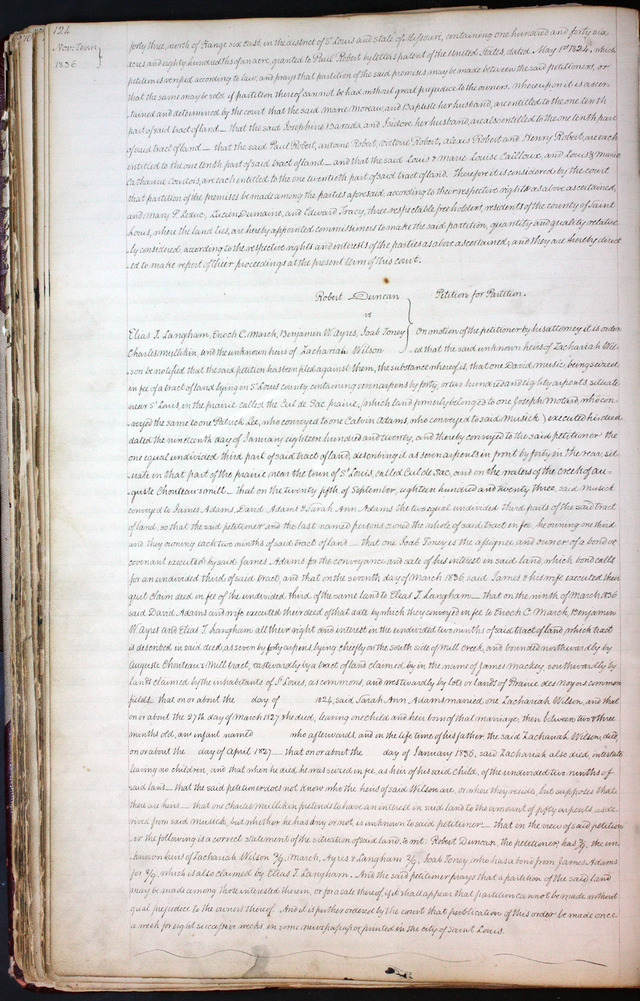 124
Nov: Term
1836
forty three, north of Range six east, in the district of St Louis and state of Missouri, containing one hundred and forty six
acres and eighty hundredths of an acre, granted to Paul Robert by letters patent of the United States, dated May 1st 1824, which
petition is verified according to law, and prays that partition of the said premises may be made between the said petitioners, or
that the same may be sold if partition thereof cannot be had without great prejudice to the owners. Whereupon it is ascer-
tained and determined by the court that the said Marie Moreau, and Baptiste her husband, are entitled to the one tenth
part of said tract of land — that the said Josephine Barada, and Isidore her husband, are also entitled to the one tenth part
of said tract of land — that the said Paul Robert, antoine Robert, victoire Robert, alexis Robert and Henry Robert, are each
entitled to the one tenth part of said tract of land — and that the said Louis & Marie Louise Cailloux, and Louis & Marie
Catharine Courtois, are each entitled to the one twentieth part of said tract of land. Therefore it is considered by the court
that partition of the premises be made among the parties aforesaid, according to their respective rights as above ascertained,
and Mary P. Leduc, Lucien Dumaine, and Edward Tracy, three respectable free holders, residents of the county of Saint
Louis, where the land lies, are hereby appointed commissioners to make the said partition, quantity and quality relative-
ly considered, according to the respective rights and interests of the parties as above ascertained, and they are hereby direct
-ed to make report of their proceedings at the present term of this court.
Robert Duncan
vs
Elias T. Langham, Enoch C. March, Benjamin W. Ayres, Joab Toney
Charles Mullikin and the unknown heirs of Zachariah Wilson
Petition for Partition.
On motion of the petitioner by his attorney it is order
-ed that the said unknown heirs of Zachariah Wil-
son be notified that the said petition has been filed against them, the substance whereof is, that one David Musick, being seized
in fee of a tract of land lying in St Louis county containing seven arpens by forty, or two hundred and eighty arpents situate
near St Louis, in the prairie called the Cul de Sac prairie, (which land formerly belonged to one Joseph Motard, who con-
veyed the same to one Patrick Lee, who conveyed to one Calvin Adams, who conveyed to said Musick) executed his deed
dated the nineteenth day of January eighteen hundred and twenty, and thereby conveyed to the said petitioner the
one equal undivided third part of said tract of land, described as seven arpents in front by forty in the rear, sit-
uate in that part of the prairie near the town of St Louis, called Cul de Sac, and on the waters of the creek of au-
guste Chouteau's mill — that on the twenty fifth of September, eighteen hundred and twenty three, said Musick
conveyed to James Adams, David Adams & Sarah Ann Adams the two equal undivided third parts of the said tract
of land, so that the said petitioner and the last named persons owned the whole of said tract in fee he owning one third
and they owning each two ninths of said tract of land — that one Joab Toney is the assignee and owner of a bond or
covenant executed by said James Adams for the conveyance and sale of his interest in said land, which bond calls
for an undivided third of said tract, and that on the seventh day of March 1836 said James & his wife executed their
quit claim deed in fee of the undivided third of the same land to Elias T. Langham — that on the ninth of March 1836
said David Adams and wife executed their deed of that date by which they conveyed in fee to Enoch C. March, Benjamin
W. Ayres and Elias T. Langham all their right and interest in the undivided two ninths of said tract of land, which tract
is described in said deed, as seven by forty arpens, lying chiefly on the south side of Mill creek, and bounded northwardly by
Auguste Chouteau's Mill tract, eastwardly by a tract of land claimed by in the name of James Mackey, southwardly by
lands claimed by the inhabitants of St Louis, as commons, and westwardly by lots or lands of Prairie des noyers common
fields — that on or about the day of 1824, said Sarah Ann Adams married, one Zachariah Wilson, and that
on or about the 27th day of March 1827 she died, leaving one child and heir born of that marriage, then between two & three
months old, an infant named who afterwards, and in the life time of his father, the said Zachariah Wilson, died,
on or about the day of April 1827 — that on or about the day of January 1836, said Zachariah also died, intestate
leaving no children, and that when he died, he was seized in fee, as heir of his said child, of the undivided two ninths of
said land — that the said petitioner does not know who the heirs of said Wilson are, or where they reside, but supposes that
there are heirs — that one Charles Mullikin pretends to have an interest in said land to the amount of fifty arpents, as de-
rived from said Musick, but whether he has any or not, is unknown to said petitioner — that in the view of said petition-
er the following is a correct statement of the situation of said land, to wit: Robert Duncan, the petitioner, has 3/9, the un-
known heirs of Zachariah Wilson 2/9, March, Ayres & Langham 2/9, Joab Toney, who has a bond from James Adams
for 2/9, which is also claimed by Elias T. Langham. And the said petitioner prays that a partition of the said land
may be made among those interested therein, or for a sale thereof, if it shall appear that partition cannot be made without
great prejudice to the owners thereof. And it is further ordered by the court that publication of this order be made once
a week for eight successive weeks, in some newspaper printed in the city of Saint Louis.